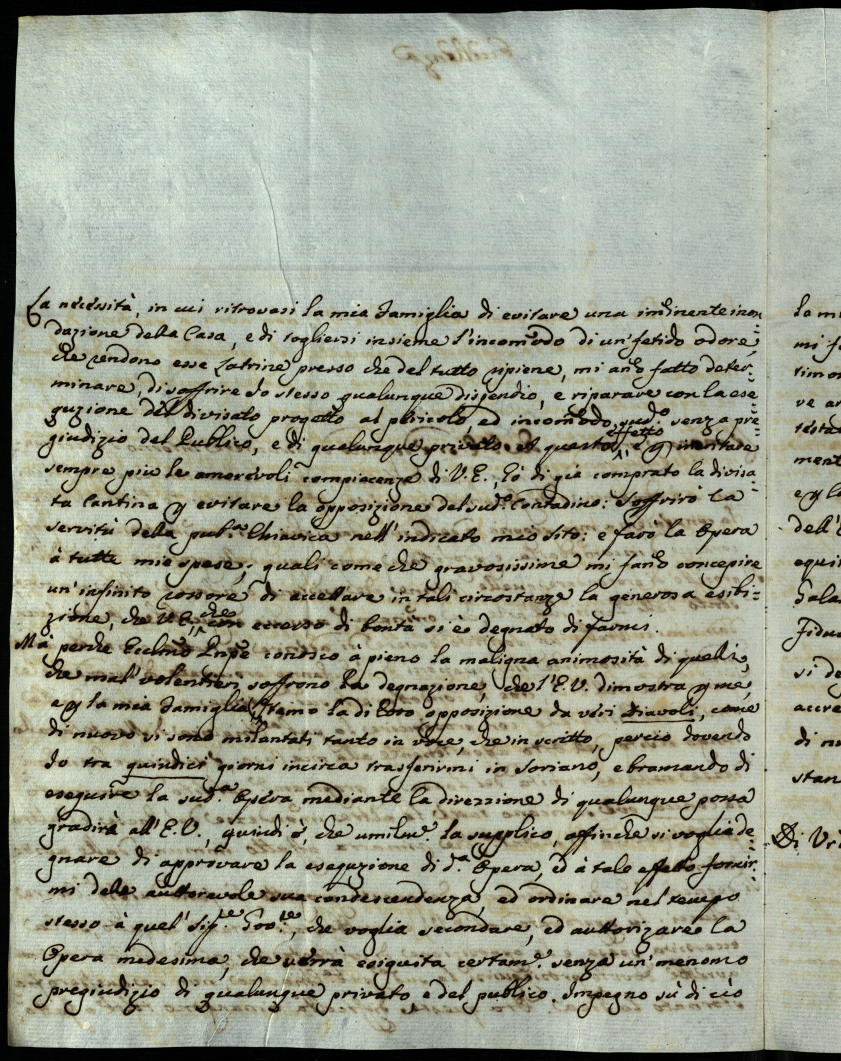 La necessità, in cui ritrovasi la mia Famiglia di evitare una imminente inon=
dazione della Casa, e di togliersi insieme l'incommodo di un fetido odore,
che rendono esse Latrine presso che del tutto ripiene, mi anno fatto deter=
minare, di soffrire Io stesso qualunque dispendio, e riparare con la ese=
guzione del divisato progetto al pericolo, ed incommodo, sud.o senza pre=
giudizio del Publico, e di qualunque privato. A questo effetto, e p meritare
sempre più le amorevoli compiacenze di V. E., hò di già comprato la divisa=
ta Cantina p evitare la opposizione del sud.o Contadino: Soffrirò la
servitù della pub.ca Chiavica nell'indicato mio sito: e farò la Opera
à tutte mie spese, quali come che gravosissime mi fanno concepire
un'infinito rossore di accettare in tali circostanze la generosa esibi=
zione, che V. E. con eccesso di bontà si è degnato di farmi.
Mà perche Eccllmo Pnpe conosco à pieno la maligna animosità di quelli,
che mal' volentieri soffrono la degnazione, che l'E. V. dimostra p me,
e p la mia Famiglia, e temo la di loro opposizione da veri Diavoli, come
di nuovo si sono milantati tanto in voce, che in scritto, perciò dovendo
Io tra quindici giorni incirca trasferirmi in Soriano, e bramando di
eseguire la sud.a Opera mediante la direzzione di qualunque possa
gradirà all'E. V., quindi è, che umilm.e la supplico, affinche si voglia de=
gnare di approvare la eseguzione di d.a Opera, ed à tale effetto fornir=
mi della auttorevole sua condescendenza, ed ordinare nel tempo
stesso à quel' Sig.re Gov.re, che voglia secondare, ed auttorizare la
Opera medesima, che verrà eseguita certam.e senza un' menomo
pregiudizio di qualunque privato e del publico. Impegno sù di ciò
la m
mi f
timo
ve a
testa
ment
e p l
dell'
equi
Gala
Fidu
si de
accre
di n
stan
Di V